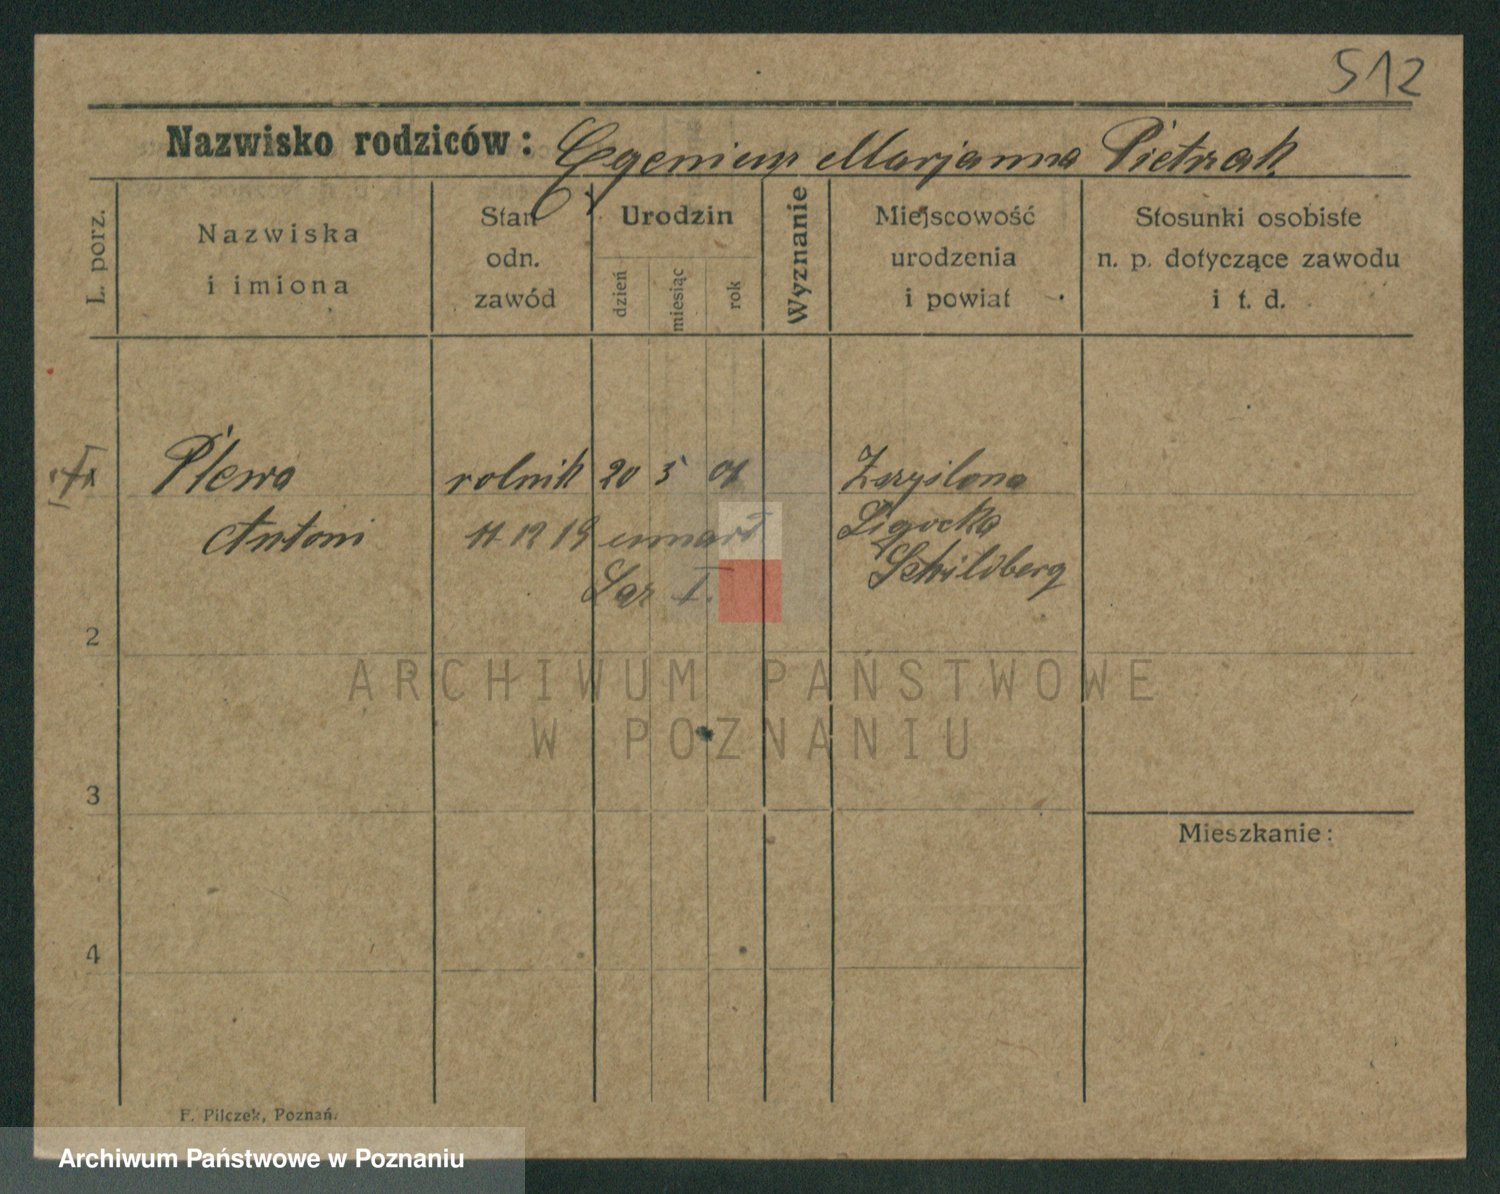 512
Nazwisko rodziców: Egeniusz Marjanna Pietrzak
L. porz.
Nazwiska
i imiona
Stan
odn.
zawód
Urodzin
dzień
miesiąc
rok
Wyznanie
Miejscowość
urodzenia
i powiat
Stosunki osobiste
n. p. dotyczące zawodu
i t. d.
Plewa rolnik 20 5
Antoni 11 12 19 umarł Ligocka
Laz I. Schildberg
2
ARCHIWUM PAŃSTWOWE
W POZNANIU
3
Mieszkanie:
4
F. Pilczek, Poznań.
Archiwum Państwowe w Poznaniu